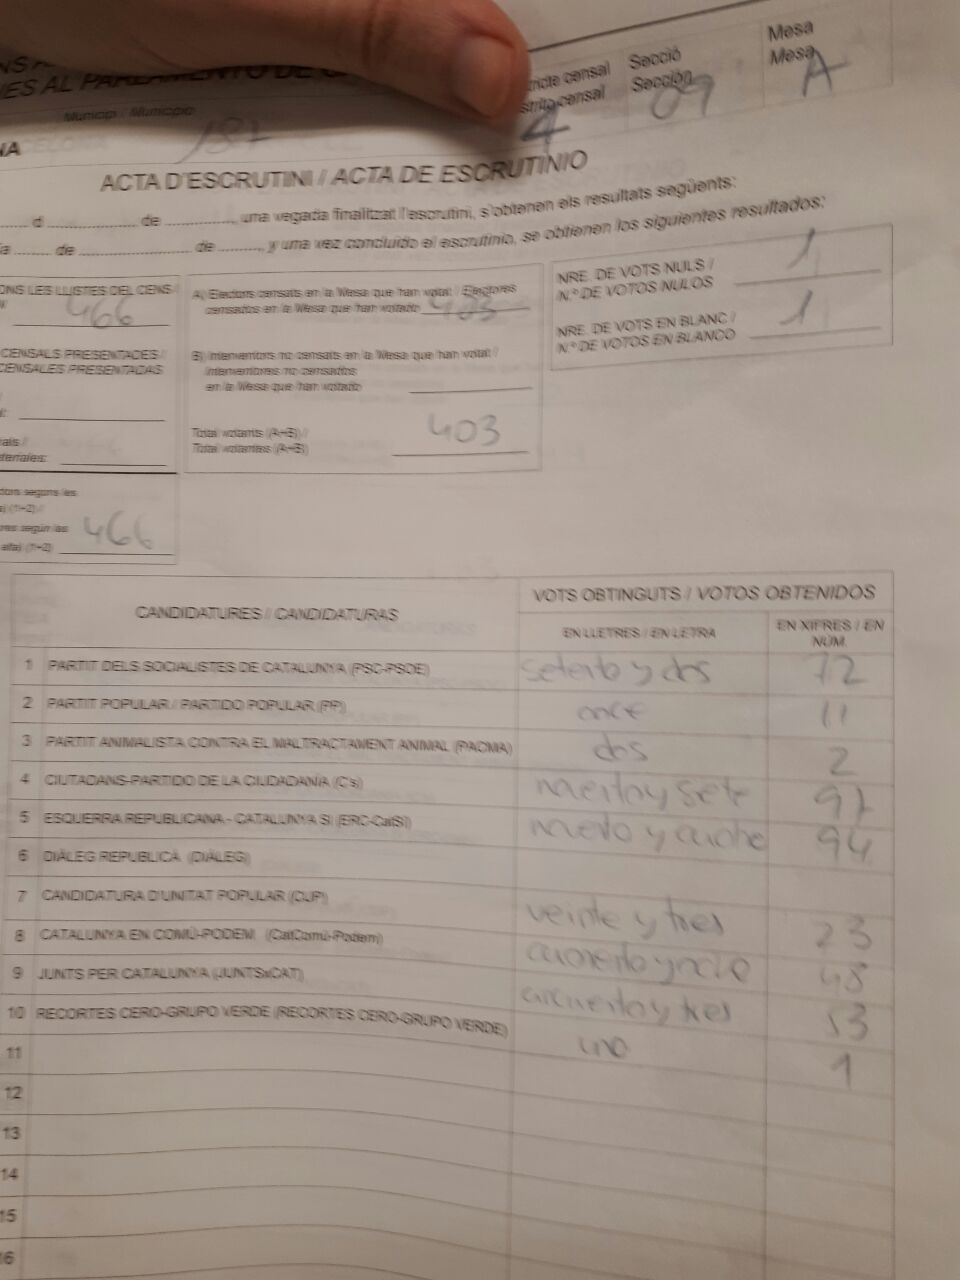 ES AL PARLAMENTO DE
Municipi / Municipio
187
censal
censal
4
Secció
Sección
09
Mesa
Mesa
A
NA
ACTA D'ESCRUTINI / ACTA DE ESCRUTINIO
d de de , una vegada finalitzat l'escrutini, s'obtenen els resultats següents:
de de , y una vez concluido el escrutinio, se obtienen los siguientes resultados:
ONS LES LLISTES DEL CENS /
466
CENSALS PRESENTADES /
CENSALES PRESENTADAS
466
A) Electors censats en la Mesa que han votat / Electores
censados en la Mesa que han votado 403
B) Interventors no censats en la Mesa que han votat /
Interventores no censados
en la Mesa que han votado
Total votants (A+B) /
Total votantes (A+B)
403
NRE. DE VOTS NULS /
N.º DE VOTOS NULOS
1
NRE. DE VOTS EN BLANC /
N.º DE VOTOS EN BLANCO
1
CANDIDATURES / CANDIDATURAS
VOTS OBTINGUTS / VOTOS OBTENIDOS
EN LLETRES / EN LETRA
EN XIFRES / EN
NÚM.
1 PARTIT DELS SOCIALISTES DE CATALUNYA (PSC-PSOE) setenta y dos 72
2 PARTIT POPULAR / PARTIDO POPULAR (PP) once 11
3 PARTIT ANIMALISTA CONTRA EL MALTRACTAMENT ANIMAL (PACMA) dos 2
4 CIUTADANS-PARTIDO DE LA CIUDADANÍA (C's) noventa y siete 97
5 ESQUERRA REPUBLICANA - CATALUNYA SÍ (ERC-CatSí) noventa y cuatro 94
6 DIÀLEG REPUBLICÀ (DIÀLEG)
7 CANDIDATURA D'UNITAT POPULAR (CUP) veinte y tres 23
8 CATALUNYA EN COMÚ-PODEM (CatComú-Podem) cuarenta y ocho 48
9 JUNTS PER CATALUNYA (JUNTSxCAT) cincuenta y tres 53
10 RECORTES CERO-GRUPO VERDE (RECORTES CERO-GRUPO VERDE) uno 1
11
12
13
14
15
16